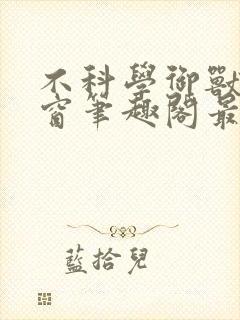 不科學御獸
窗筆趣閣最
藍拾兒